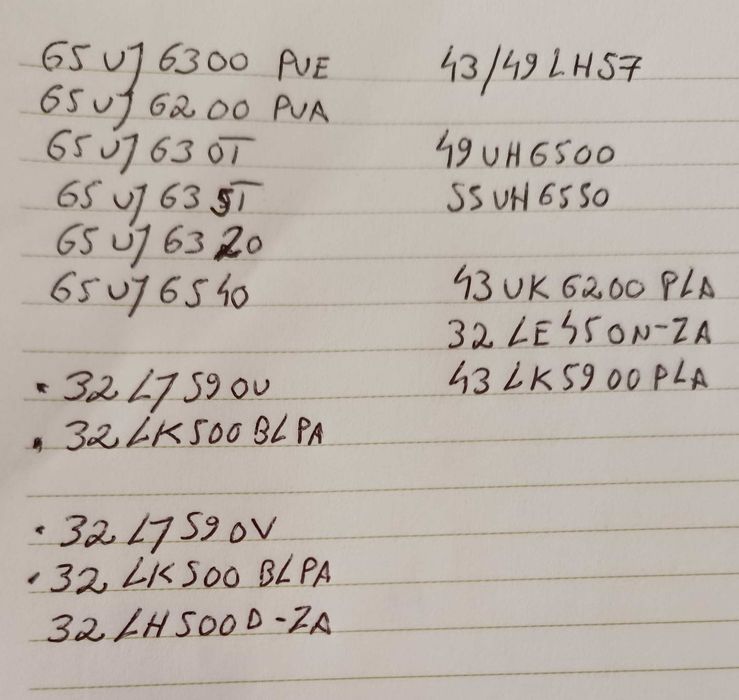 65 UJ 6300 PUE
65 UJ 6200 PUA
65 UJ 630T
65 UJ 635T
65 UJ 6320
65 UJ 6540
• 32 LJ 590U
• 32 LK500 BLPA
• 32 LJ 590V
• 32 LK500 BLPA
32 LH500D-ZA
43/49 LH57
49 UH6500
55 UH6550
43 UK 6200 PLA
32 LE450N-ZA
43 LK5900PLA